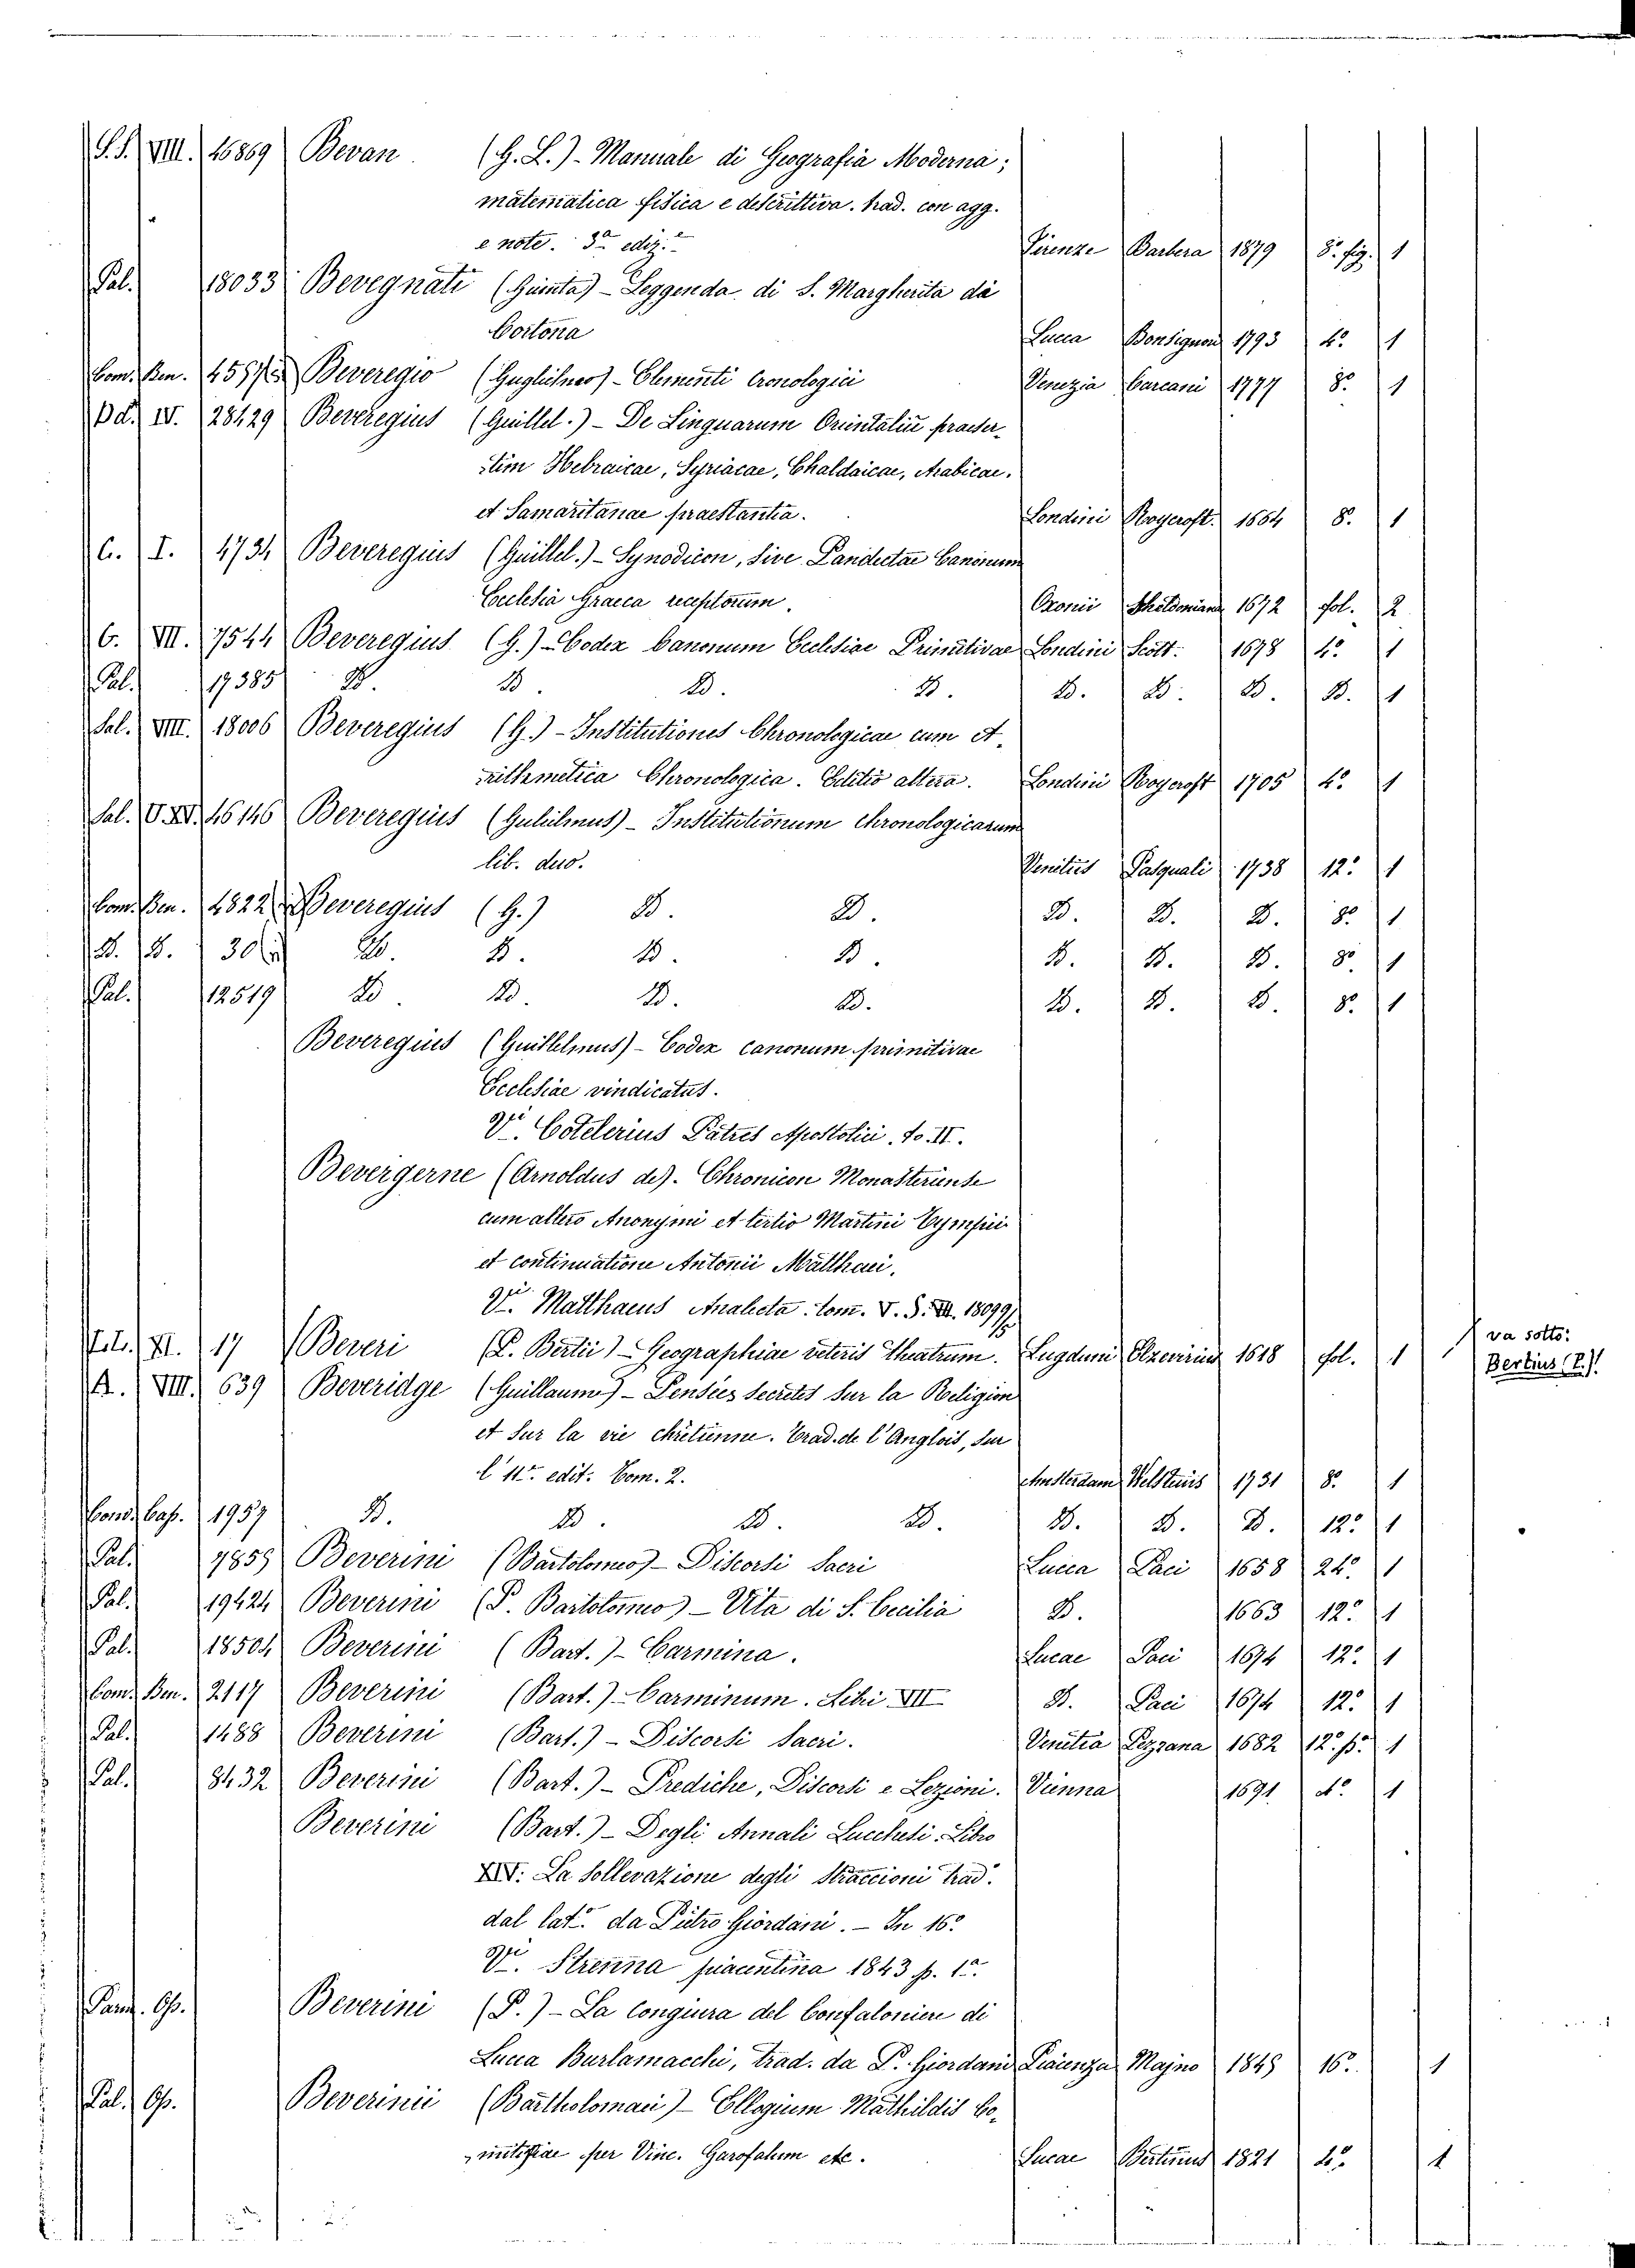 S.S. VIII. 16869 Bevan (G. L.) - Manuale di Geografia Moderna;
matematica fisica e descrittiva. trad. con agg.
e note. 3a ediz.e Firenze Barbera 1879 8.º fig. 1
Pal. 18033 Bevegnati (Giunta) - Leggenda di S. Margherita da
Cortona Lucca Bonsignori 1793 4.º 1
Com. Ben. Beveregio (Guglielmo) - Elementi Cronologici Venezia Carcani 1777 8.º 1
IV. 28429 Beveregius (Guillel.) - De Linguarum Orientaliu praeser-
tim Hebraicae, Syriacae, Chaldaicae, Arabicae.
et Samaritanae praestantia. Londini Roycroft. 1664 8.º 1
C. I. 4734 Beveregius (Guillel.) - Synodicon, sive Pandectae Canonum
Ecclesia Graeca receptorum. Oxonii 1672 fol. 2
C. VII. 7544 Beveregius (G.) - Codex Canonum Ecclesiae Primitivae Londini Scott. 1678 4.º 1
Pal. 17385 D. D. D. D. D. D. D. D. 1
Sal. VIII. 18006 Beveregius (G.) - Institutiones Chronologicae cum A-
rithmetica Chronologica. Editio altera. Londini Roycroft 1705 4.º 1
Sal. 46146 Beveregius (Gulielmus) - Institutionum chronologicarum
lib. duo. Venitiis Pasquali 1738 12.º 1
Com. Ben. 4822 Beveregius (G.) D. D. D. D. D. 8.º 1
B. B. 30 D. D. D. D. D. D. D. 8.º 1
Pal. 12519 D. D. D. D. D. D. D. 8.º 1
Beveregius (Guillelmus) - Codex canonum primitivae
Ecclesiae vindicatus.
Vi. Cotelerius Patres Apostolici. to. II.
Bevergerne (Arnoldus de). Chronicon Monasteriense
cum altero Anonymi et tertio Martini
et continuatione Antonii Matthaei.
Vi. Matthaeus Analecta. tom. V. S. VII. 18099/
XI. 17 Beveri (P. Bertii) - Geographiae veteris Theatrum. Lugduni Elzevirius 1618 fol. 1 va sotto:
Bertius (P.).
A. VIII. 639 Beveridge (Guillaume) - Pensées secretes sur la Religion
et sur la vie chrétienne. Trad. de l'Anglois, sur
l'11e. edit. Tom. 2. Amsterdam Welsteins 1731 8.º 1
Cond. Cap. 1957 D. D. D. D. D. D. D. 12.º 1
Pal. 7859 Beverini (Bartolomeo) - Discorsi Sacri Lucca Paci 1658 24.º 1
Pal. 19424 Beverini (P. Bartolomeo) - Vita di S. Cecilia D. 1663 12.º 1
Pal. 18504 Beverini (Bart.) - Carmina. Lucae Paci 1674 12.º 1
Com. Ben. 2117 Beverini (Bart.) - Carminum. Libi VII D. Paci 1674 12.º 1
Pal. 1488 Beverini (Bart.) - Discorsi Sacri. Venetia Pezzana 1682 12.º p.º 1
Pal. 8432 Beverini (Bart.) - Prediche, Discorsi e Lezioni. Vienna 1691 4.º 1
Beverini (Bart.) - Degli Annali Lucchesi. Libro
XIV. La sollevazione degli Straccioni trad.
dal lat.º da Pietro Giordani. - In 16.º
Vi. Strenna piacentina 1843 p. 1a.
Op. Beverini (P.) - La Congiura del Confaloniere di
Lucca Burlamacchi, trad. da P. Giordani Piacenza Majno 1849 16.º 1
Pal. Op. Beverinii (Bartholomaei) - Ellogium Mathildis Co-
mitissae per Vinc. Garofalum etc. Lucae Bertinus 1821 4.º 1